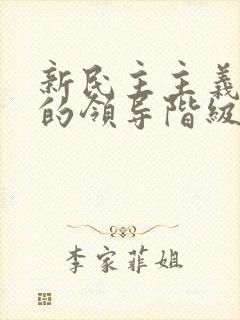 新民主主義
的領导階級
李家菲姐